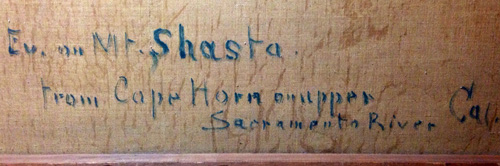 Ev. on Mt. Shasta.
from Cape Horn on upper
Sacramento River Cal.